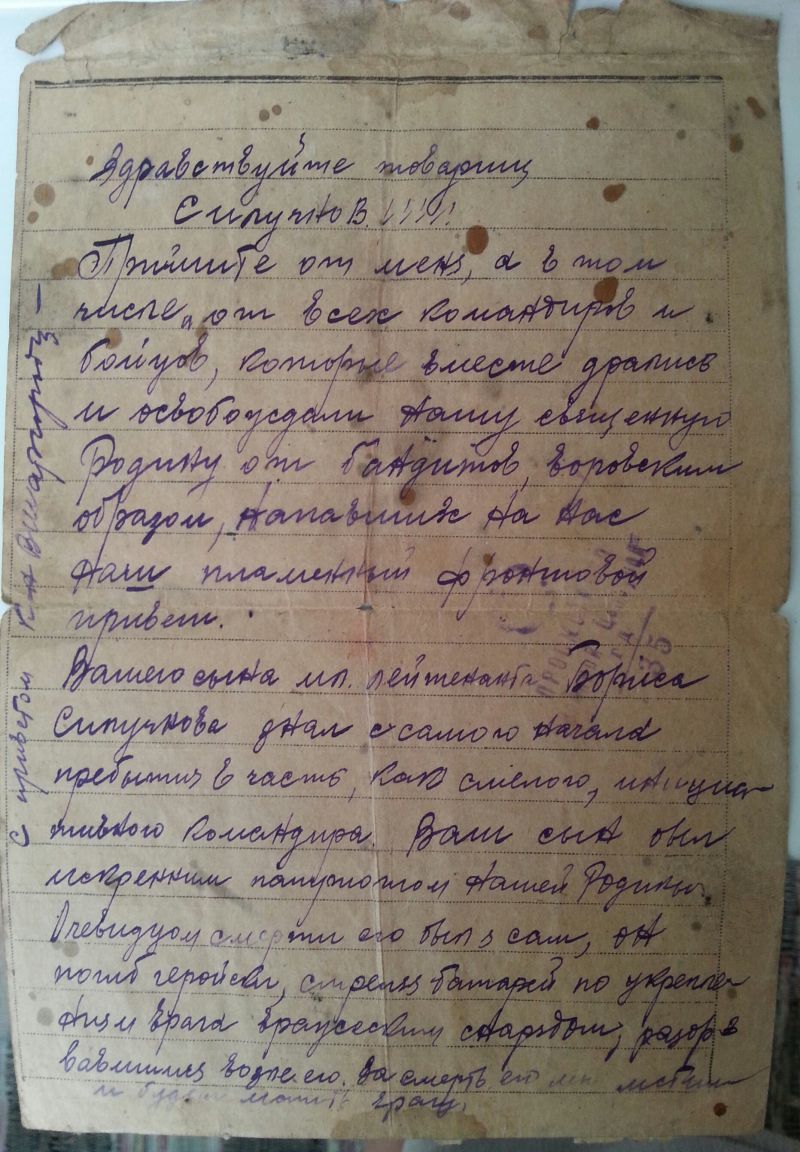 Здравствуйте товарищ
Сипучнов.!!!!!
Примите от меня, а в том
числе, от всех командиров и
бойцов, которые вместе дрались
и освобождали нашу священную
Родину от бандитов, воровским
образом, напавших на нас
наш пламенный фронтовой
привет.
Вашего сына мл. лейтенанта Бориса
Сипучнова знал с самого начала
пребытия в часть, как смелого, инициа-
тивного командира. Ваш сын был
искренним патриотом нашей Родины.
Очевидцом смерти его был я сам, он
погиб геройски, стреляя батареей по укрепле-
ниям врага вражеским снарядом, разор-
вавшимся возле его. За смерть его мы мстим
и будем мстить врагу.
с приветом
35